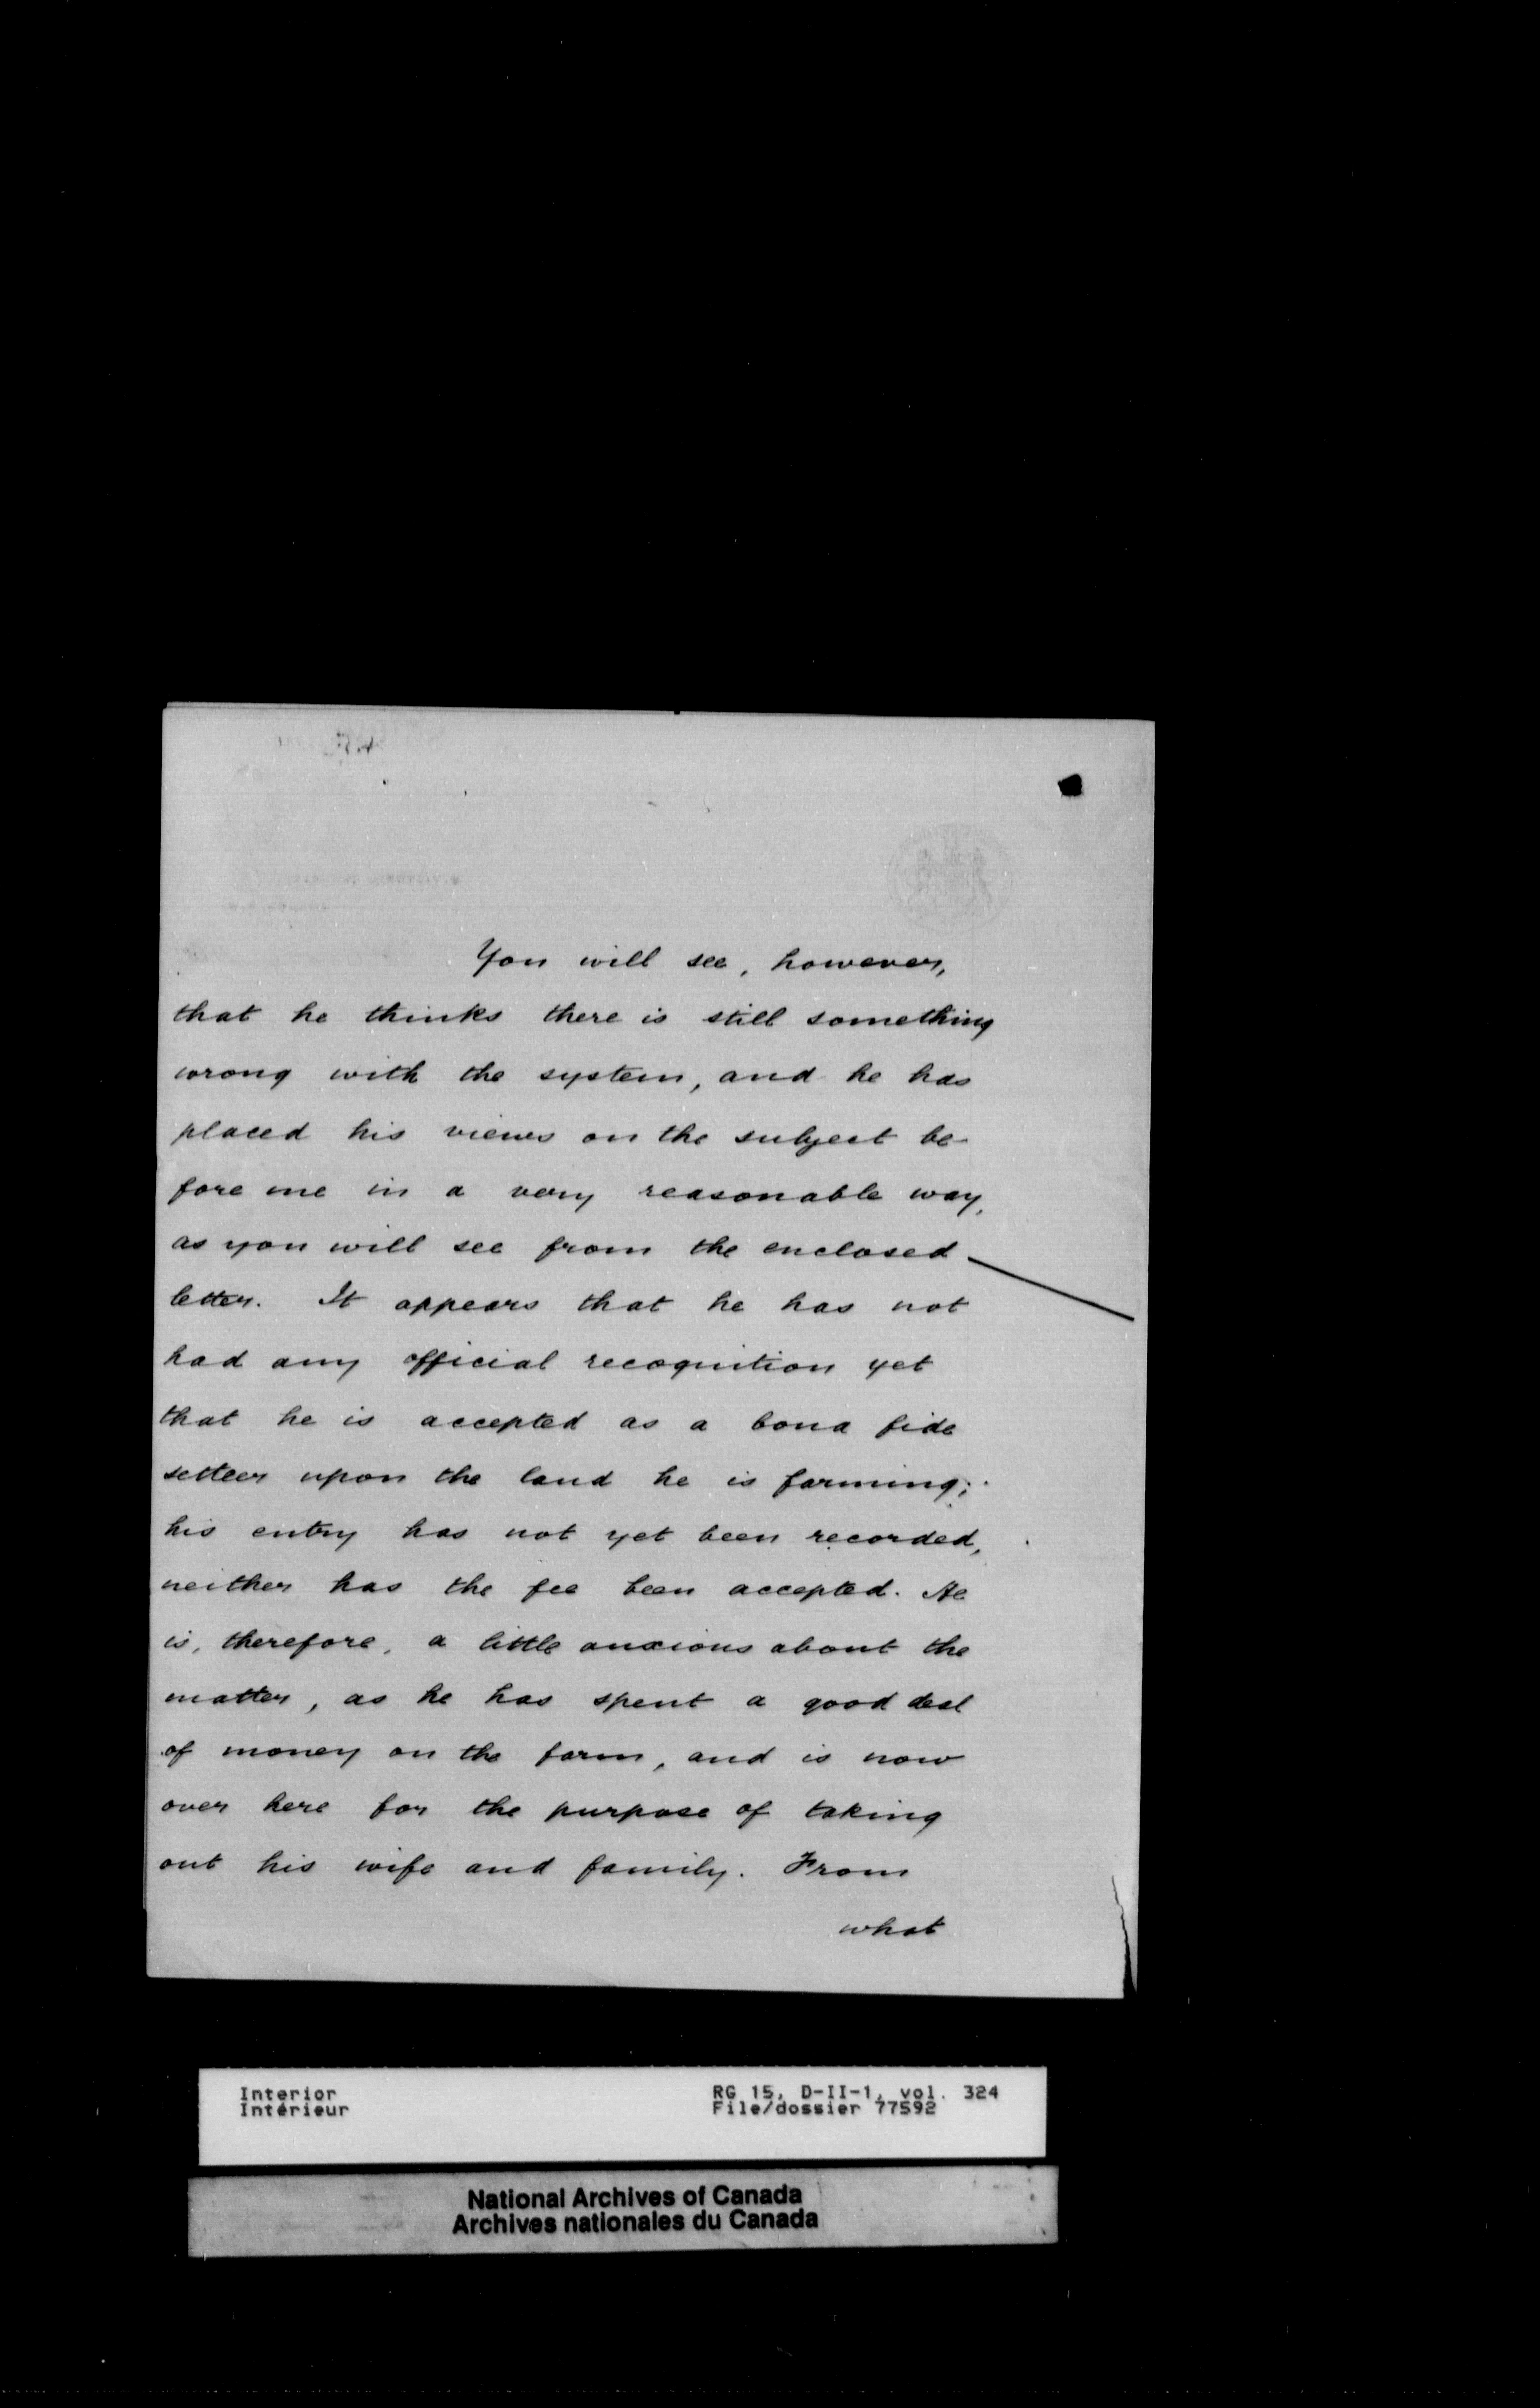 You will see, however,
that he thinks there is still something
wrong with the system, and he has
placed his views on the subject be-
fore me in a very reasonable way,
as you will see from the enclosed
letter. It appears that he has not
had any official recognition yet
that he is accepted as a bona fide
settler upon the land he is farming;
his entry has not yet been recorded,
neither has the fee been accepted. He
is, therefore, a little anxious about the
matter, as he has spent a good deal
of money on the farm, and is now
over here for the purpose of taking
out his wife and family. From
what
Interior
Intérieur
RG 15, D-II-1, vol. 324
File/dossier 77592
National Archives of Canada
Archives nationales du Canada